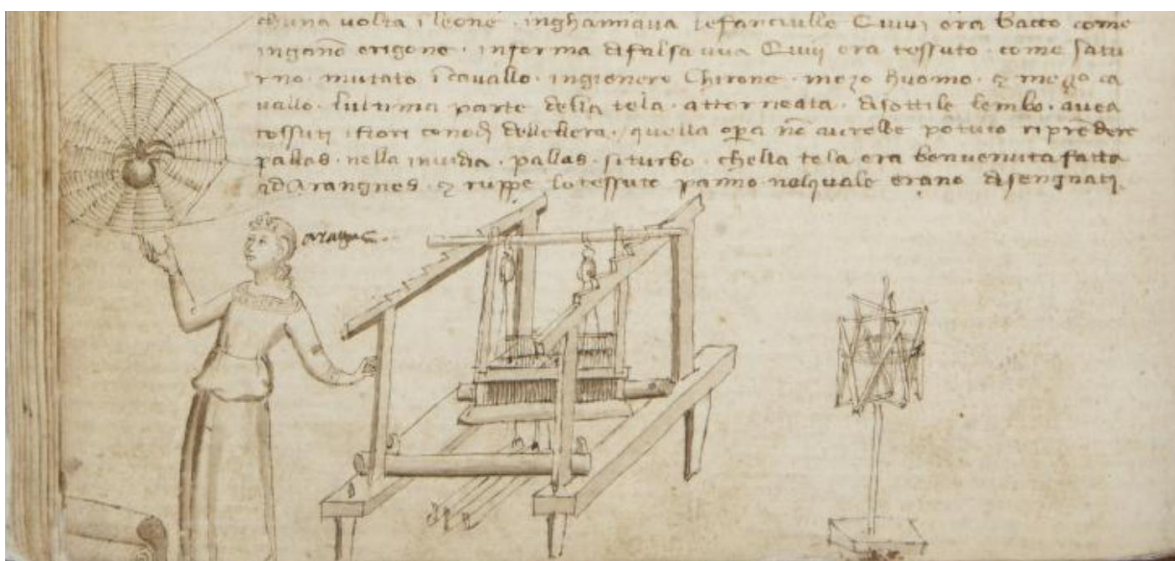 chuna volta i leone · inghannava le fanciulle Quiui era bacco come
ingano erigone · in forma di falsa uua Quiui era tessuto · come satu
rno · mutato i cauallo · ingienero Chirone · mezo huomo · & mezo ca
uallo · lultima parte della tela · attorneata · disottile lembo · auea
tessuti i fiori co nodi dellellera · quella opa no aurebbe potuto riprēdere
pallas · nella inuidia · pallas · si turbo · chella tela era benuenuta fatta
ad Arangnes · & ruppe lo tessuto panno nelquale erano disengnati